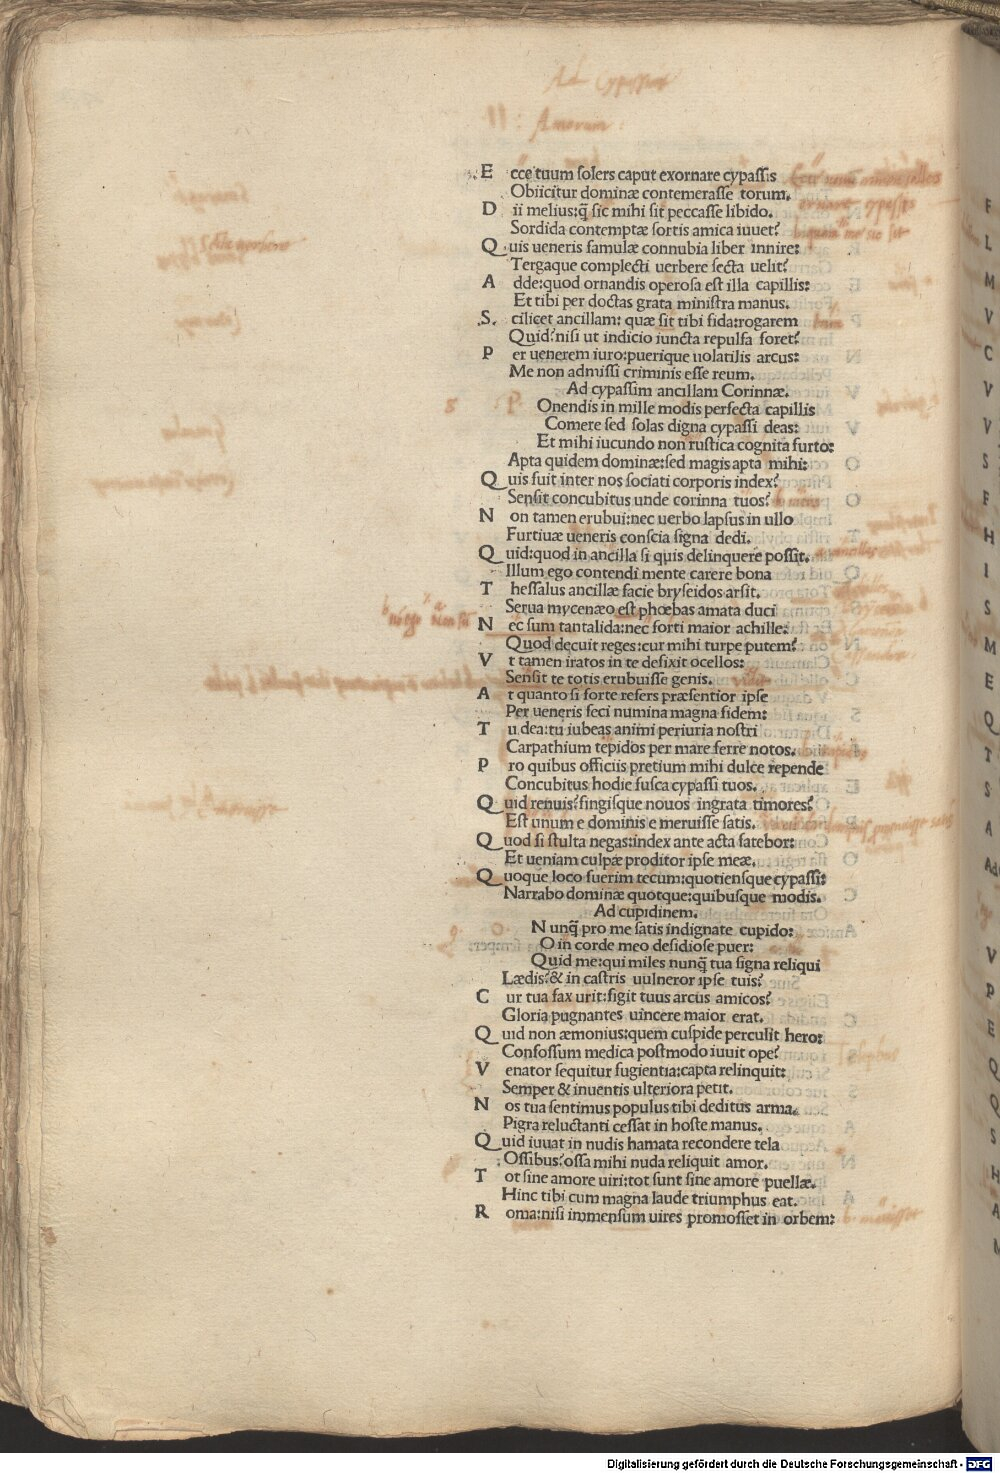 Ad Cypassim
II : Amorum :
E cce tuum solers caput exornare cypassis
Obiicitur dominæ contemerasse torum.
D ii melius:q̃ sic mihi sit peccasse libido.
Sordida contemptæ sortis amica iuuet?
Q uis ueneris famulæ connubia liber innire:
Tergaque complecti uerbere secta uelit?
A dde:quod ornandis operosa est illa capillis:
Et tibi per doctas grata ministra manus.
S cilicet ancillam: quæ sit tibi fida:rogarem
Quid?nisi ut indicio iuncta repulsa foret?
P er uenerem iuro:puerique uolatilis arcus:
Me non admissi criminis esse reum.
Ad cypassim ancillam Corinnæ.
8 P
Onendis in mille modis perfecta capillis
Comere sed solas digna cypassi deas:
Et mihi iucundo non rustica cognita furto:
Apta quidem dominæ:sed magis apta mihi:
Q uis fuit inter nos sociati corporis index?
Sensit concubitus unde corinna tuos?
N on tamen erubui:nec uerbo lapsus in ullo
Furtiuæ ueneris conscia signa dedi.
Q uid:quod in ancilla si quis delinquere possit.
Illum ego contendi mente carere bona
T hessalus ancillæ facie bryseidos arsit.
Serua mycenæo est phœbas amata duci
N ec sum tantalida:nec forti maior achille:
Quod decuit reges:cur mihi turpe putem?
V t tamen iratos in te defixit ocellos:
Sensit te totis erubuisse genis.
A t quanto si forte refers præsentior ipse
Per ueneris feci numina magna fidem:
T u dea:tu iubeas animi periuria nostri
Carpathium tepidos per mare ferre notos.
P ro quibus officiis pretium mihi dulce repende
Concubitus hodie fusca cypassi tuos.
Q uid renuis?fingisque nouos ingrata timores?
Est unum e dominis e meruisse satis.
Q uod si stulta negas:index ante acta fatebor:
Et ueniam culpæ proditor ipse meæ.
Q uoque loco fuerim tecum:quotiensque cypassi:
Narrabo dominæ quotque:quibusque modis.
Ad cupidinem.
9
N unq̃ pro me satis indignate cupido:
O in corde meo desidiose puer:
Quid me:qui miles nunq̃ tua signa reliqui
Lædis?& in castris uulneror ipse tuis?
C ur tua fax urit:figit tuus arcus amicos?
Gloria pugnantes uincere maior erat.
Q uid non æmonius:quem cuspide perculit hero:
Confossum medica postmodo iuuit ope?
V enator sequitur fugientia:capta relinquit:
Semper & inuentis ulteriora petit.
N os tua sentimus populus tibi deditus arma.
Pigra reluctanti cessat in hoste manus.
Q uid iuuat in nudis hamata recondere tela
Ossibus?ossa mihi nuda reliquit amor.
T ot sine amore uiri:tot sunt sine amore puellæ.
Hinc tibi cum magna laude triumphus eat.
R oma:nisi immensum uires promosset in orbem:
Digitalisierung gefördert durch die Deutsche Forschungsgemeinschaft - DFG